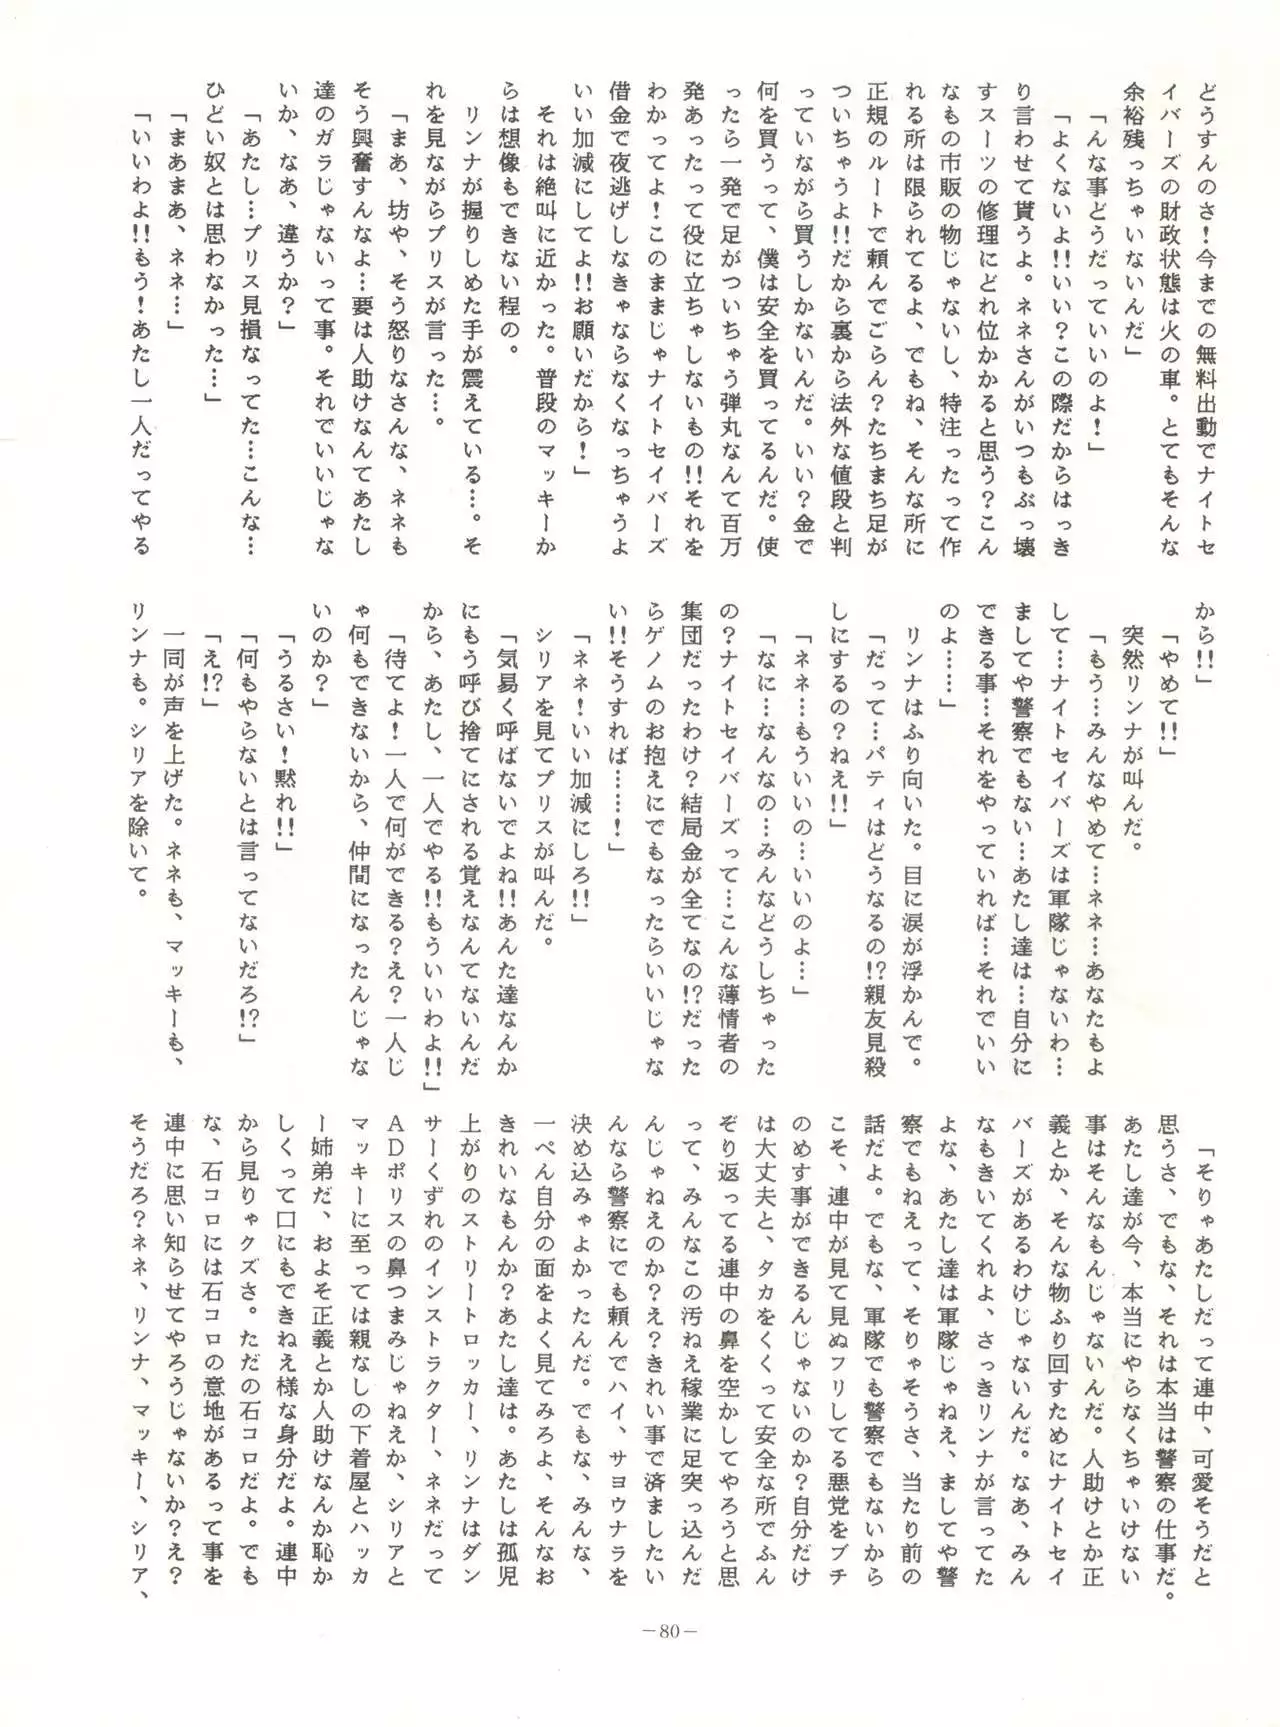 どうすんのさ！今までの無料出動でナイトセ
イバーズの財政状態は火の車。とてもそんな
余裕残っちゃいないんだ」
「んな事どうだっていいのよ！」
「よくないよ!!いい？この際だからはっき
り言わせて貰うよ。ネネさんがいつもぶっ壊
すスーツの修理にどれ位かかると思う？こん
なもの市販の物じゃないし、特注ったって作
れる所は限られてるよ、でもね、そんな所に
正規のルートで頼んでごらん？たちまち足が
ついちゃうよ!!だから裏から法外な値段と判
っていながら買うしかないんだ。いい？金で
何を買うって、僕は安全を買ってるんだ。使
ったら一発で足がついちゃう弾丸なんて百万
発あったって役に立ちゃしないもの!!それを
わかってよ！このままじゃナイトセイバーズ
借金で夜逃げしなきゃならなくなっちゃうよ
いい加減にしてよ!!お願いだから！」
それは絶叫に近かった。普段のマッキーか
らは想像もできない程の。
リンナが握りしめた手が震えている…。そ
れを見ながらプリスが言った…。
「まあ、坊や、そう怒りなさんな、ネネも
そう興奮すんなよ…要は人助けなんてあたし
達のガラじゃないって事。それでいいじゃな
いか、なあ、違うか？」
「あたし…プリス見損なってた…こんな…
ひどい奴とは思わなかった…」
「まあまあ、ネネ…」
「いいわよ!!もう！あたし一人だってやる
から!!」
「やめて!!」
突然リンナが叫んだ。
「もう…みんなやめて…ネネ…あなたもよ
して…ナイトセイバーズは軍隊じゃないわ…
ましてや警察でもない…あたし達は…自分に
できる事…それをやっていれば…それでいい
のよ……」
リンナはふり向いた。目に涙が浮かんで。
「だって…パティはどうなるの!?親友見殺
しにするの？ねえ!!」
「ネネ…もういいの…いいのよ…」
「なに…なんなの…みんなどうしちゃった
の？ナイトセイバーズって…こんな薄情者の
集団だったわけ？結局金が全てなの!?だった
らゲノムのお抱えにでもなったらいいじゃな
い!!そうすれば……！」
「ネネ！いい加減にしろ!!」
シリアを見てプリスが叫んだ。
「気易く呼ばないでよね!!あんた達なんか
にもう呼び捨てにされる覚えなんてないんだ
から、あたし、一人でやる!!もういいわよ!!」
「待てよ！一人で何ができる？え？一人じ
ゃ何もできないから、仲間になったんじゃな
いのか？」
「うるさい！黙れ!!」
「何もやらないとは言ってないだろ!?」
「え!?」
一同が声を上げた。ネネも、マッキーも、
リンナも。シリアを除いて。
「そりゃあたしだって連中、可愛そうだと
思うさ、でもな、それは本当は警察の仕事だ。
あたし達が今、本当にやらなくちゃいけない
事はそんなもんじゃないんだ。人助けとか正
義とか、そんな物ふり回すためにナイトセイ
バーズがあるわけじゃないんだ。なあ、みん
なもきいてくれよ、さっきリンナが言ってた
よな、あたし達は軍隊じゃねえ、ましてや警
察でもねえって、そりゃそうさ、当たり前の
話だよ。でもな、軍隊でも警察でもないから
こそ、連中が見て見ぬフリしてる悪党をブチ
のめす事ができるんじゃないのか？自分だけ
は大丈夫と、タカをくくって安全な所でふん
ぞり返ってる連中の鼻を空かしてやろうと思
って、みんなこの汚ねえ稼業に足突っ込んだ
んじゃねえのか？え？きれい事で済ましたい
んなら警察にでも頼んでハイ、サヨウナラを
決め込みゃよかったんだ。でもな、みんな、
一ぺん自分の面をよく見てみろよ、そんなお
きれいなもんか？あたし達は。あたしは孤児
上がりのストリートロッカー、リンナはダン
サーくずれのインストラクター、ネネだって
ＡＤポリスの鼻つまみじゃねえか、シリアと
マッキーに至っては親なしの下着屋とハッカ
ー姉弟だ、およそ正義とか人助けなんか恥か
しくって口にもできねえ様な身分だよ。連中
から見りゃクズさ。ただの石コロだよ。でも
な、石コロには石コロの意地があるって事を
連中に思い知らせてやろうじゃないか？え？
そうだろ？ネネ、リンナ、マッキー、シリア、
－80－